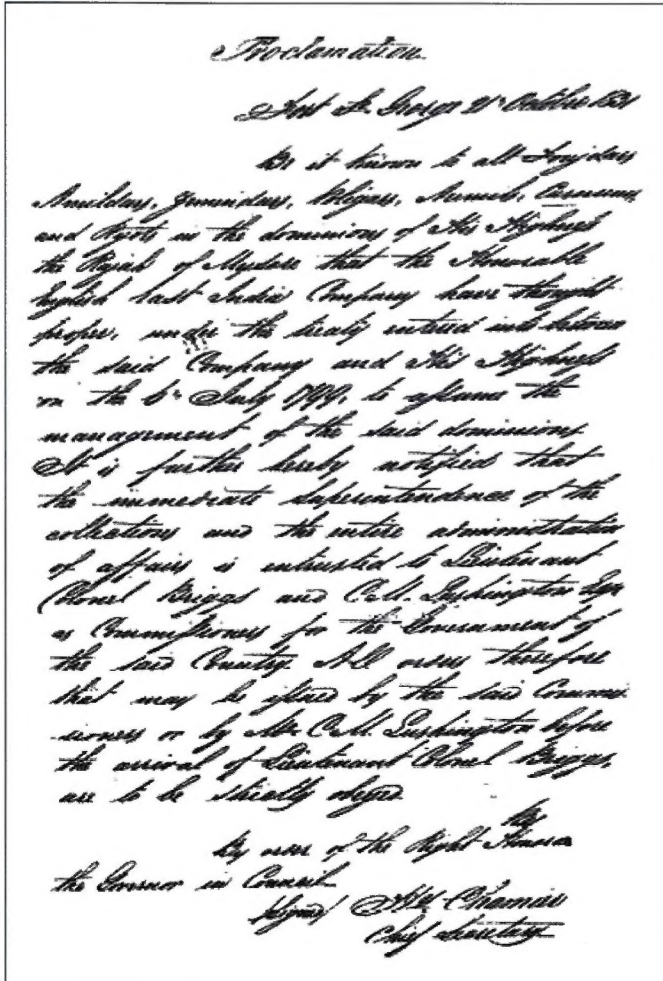 Proclamation
Fort St. George 21st October 1831
Be it known to all Foujdars
Amildars, Zemindars, Poligars, Munsib,
and Ryots in the dominions of His Highness
the Rajah of Mysore that the Honorable
English East India Company have thought
proper, under the treaty entered into between
the said Company and His Highness
on the 6th July 1799, to assume the
management of the said dominions
It is further hereby notified that
the immediate superintendence of the
collections and the entire administration
of affairs is entrusted to Lieutenant
Colonel Briggs and C.M. Lushington Esqr
as Commissioners for the Government of
the said Country. All orders therefore
that may be issued by the said Commis-
sioners or by Mr. C.M. Lushington before
the arrival of Lieutenant Colonel Briggs,
are to be strictly obeyed
By
By order of the Right Honora
the Governor in Council
Signed/ Chamier
Chief Secretary